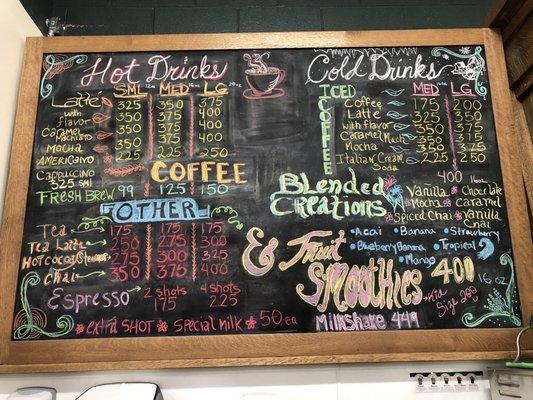 Hot Drinks
SML MED LG
Latte 325 350 375
with flavor 350 375 400
Caramel 350 375 400
Mocha 350 375 400
AMERICANO 225 225 250
Cappuccino
325 SMl
COFFEE
FRESH BREW 99 125 150
OTHER
Tea 175 175 175
Tea Latte 250 275 300
Hot Cocoa 275 300 325
Chai 350 375 400
Espresso 2 shots 4 shots
175 225
extra SHOT special milk 50 ea
Cold Drinks
ICED COFFEE
MED LG
Coffee 175 200
Latte 325 350
with flavor 350 375
Caramel 350 375
Mocha 350 375
Italian Cream Soda 225 250
400 16oz
Blended Creations
Vanilla Chocolate
Mocha Caramel
Spiced Chai Vanilla Chai
& Fruit Smoothies
Acai Banana Strawberry
Blueberry Banana Tropical
Mango
400 16 oz
Kid Size 200
Milkshake 449